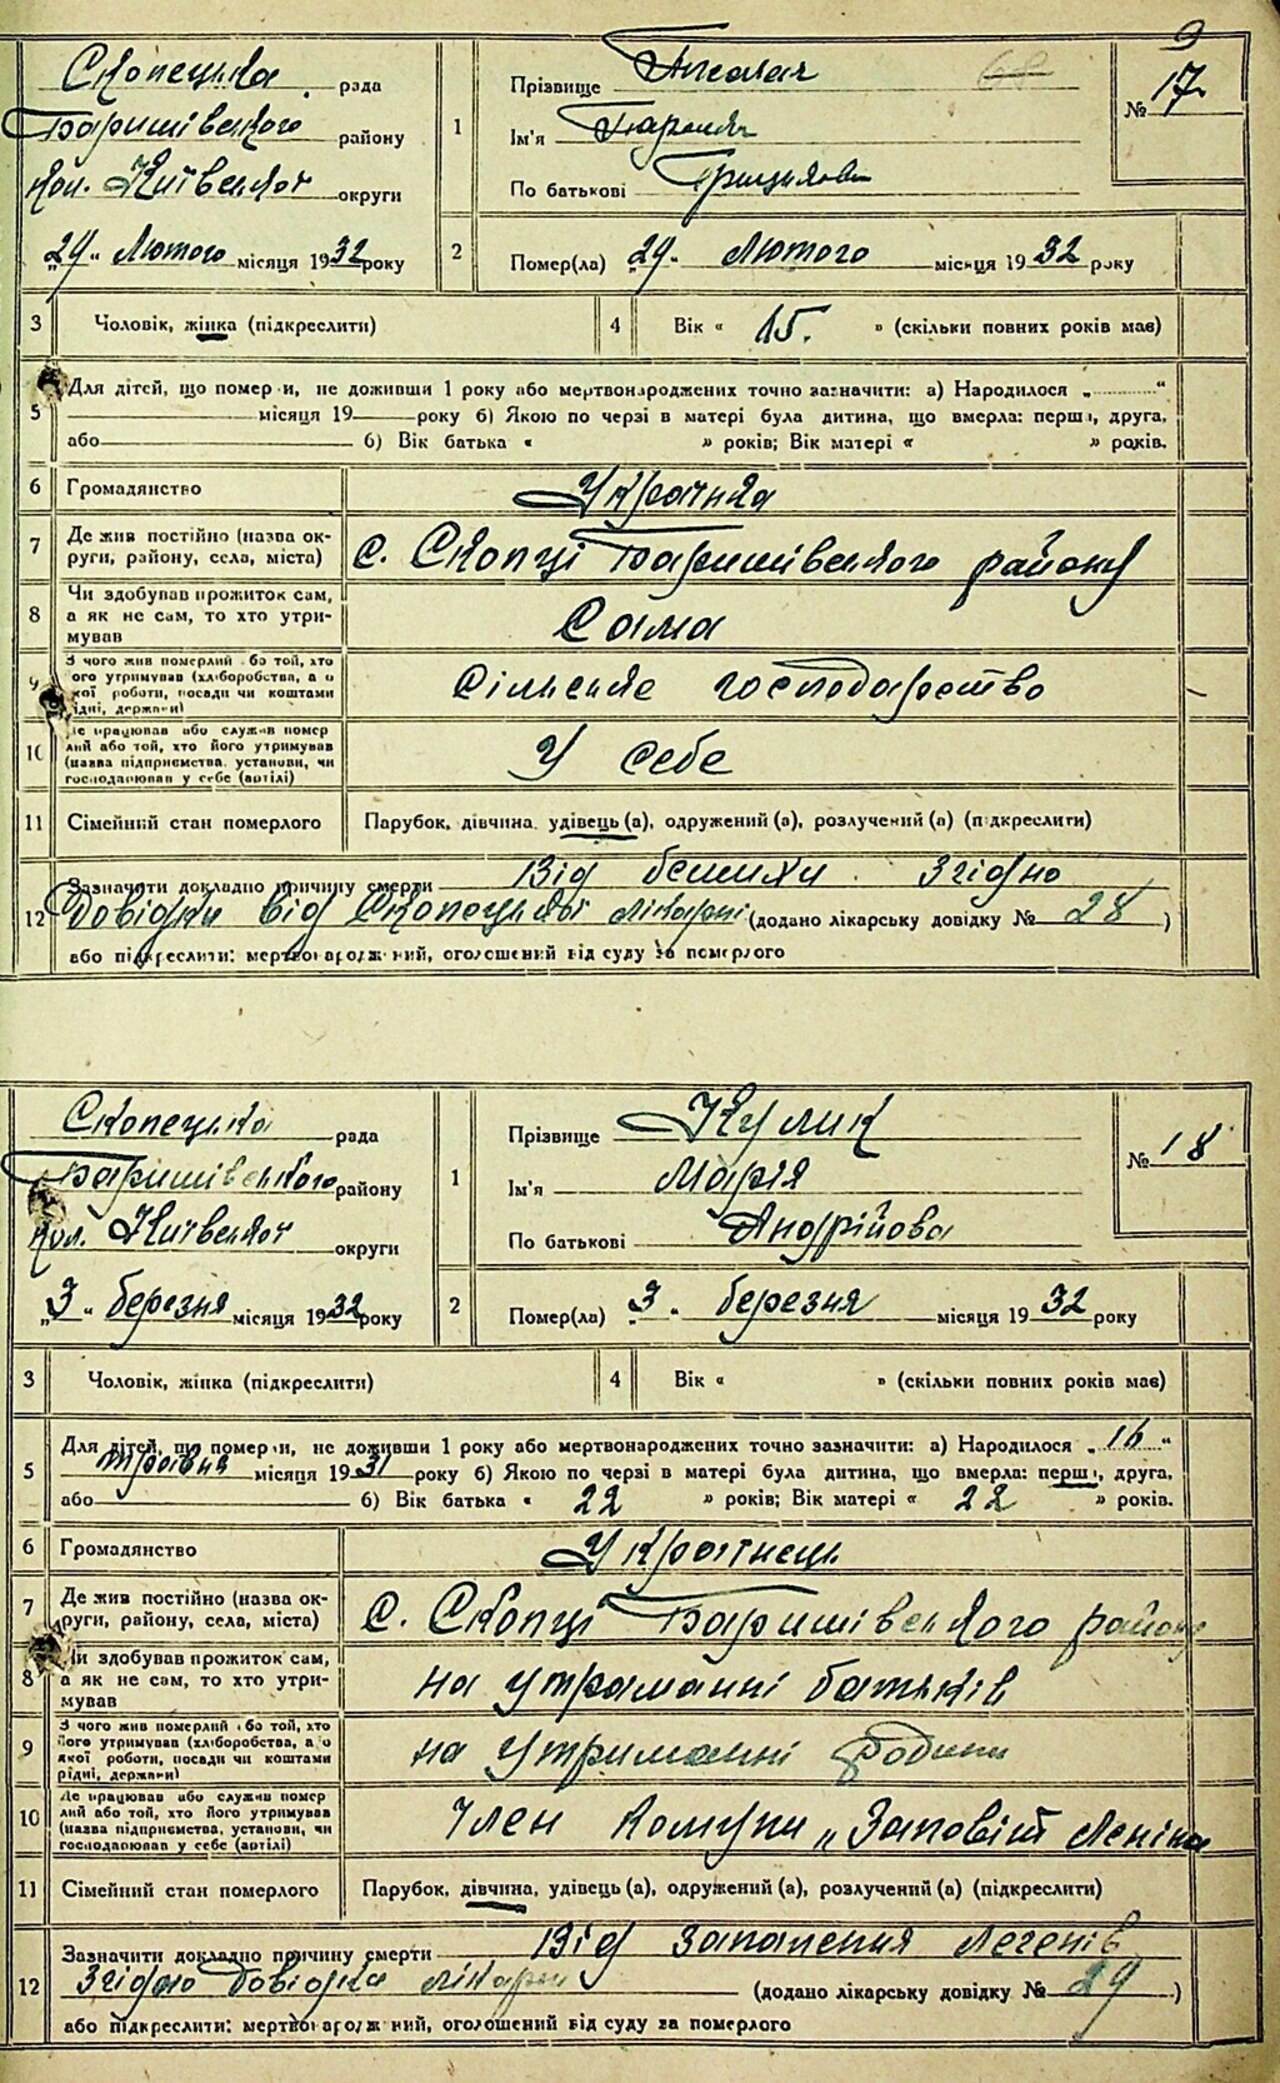 9
Скопецька рада
Баришівського району
кол. Київської округи
„29“ Лютого місяця 1932 року
1
Прізвище
Ім'я Параска
По батькові Грицькова
№ 17
2
Помер(ла) „29“ Лютого місяця 1932 року
3 Чоловік, жінка (підкреслити)
4 Вік « » (скільки повних років має)
5 Для дітей, що померли, не доживши 1 року або мертвонароджених точно зазначити: а) Народилося „ “
місяця 19 року б) Якою по черзі в матері була дитина, що вмерла: перша, друга,
або б) Вік батька « » років; Вік матері « » років.
6 Громадянство Українка
7 Де жив постійно (назва ок-
руги, району, села, міста) С. Скопці Баришівського району
8 Чи здобував прожиток сам,
а як не сам, то хто утри-
мував Сама
9 З чого жив померлий або той, хто
його утримував (хліборобства, а о
якої роботи, посади чи коштами
рідні, держави) Сільське господарство
10 Де працював або служив помер
лий або той, хто його утримував
(назва підприємства, установи, чи
господарював у себе (артілі) У себе
11 Сімейний стан померлого Парубок, дівчина, удівець (а), одружений (а), розлучений (а) (підкреслити)
12 Зазначити докладно причину смерти Від бешихи Згідно
довідки від Скопецької лікарні (додано лікарську довідку № 28 )
або підкреслити: мертвонароджений, оголошений від суду за померлого
Скопецька рада
Баришівського району
кол. Київської округи
„3“ березня місяця 1932 року
1
Прізвище Кулик
Ім'я Марія
По батькові Андрійова
№ 18
2
Помер(ла) „3“ березня місяця 1932 року
3 Чоловік, жінка (підкреслити)
4 Вік « » (скільки повних років має)
5 Для дітей, що померли, не доживши 1 року або мертвонароджених точно зазначити: а) Народилося „16“
травня місяця 1931 року б) Якою по черзі в матері була дитина, що вмерла: перша, друга,
або б) Вік батька « 22 » років; Вік матері « 22 » років.
6 Громадянство Українець
7 Де жив постійно (назва ок-
руги, району, села, міста) С. Скопці Баришівського району
8 Чи здобував прожиток сам,
а як не сам, то хто утри-
мував на утриманні батьків
9 З чого жив померлий або той, хто
його утримував (хліборобства, а о
якої роботи, посади чи коштами
рідні, держави) на утриманні родини
10 Де працював або служив помер
лий або той, хто його утримував
(назва підприємства, установи, чи
господарював у себе (артілі) Член Комуни „Заповіт Леніна
11 Сімейний стан померлого Парубок, дівчина, удівець (а), одружений (а), розлучений (а) (підкреслити)
12 Зазначити докладно причину смерти Від Запалення Легенів
Згідно довідка лікарні (додано лікарську довідку № 29 )
або підкреслити: мертвонароджений, оголошений від суду за померлого